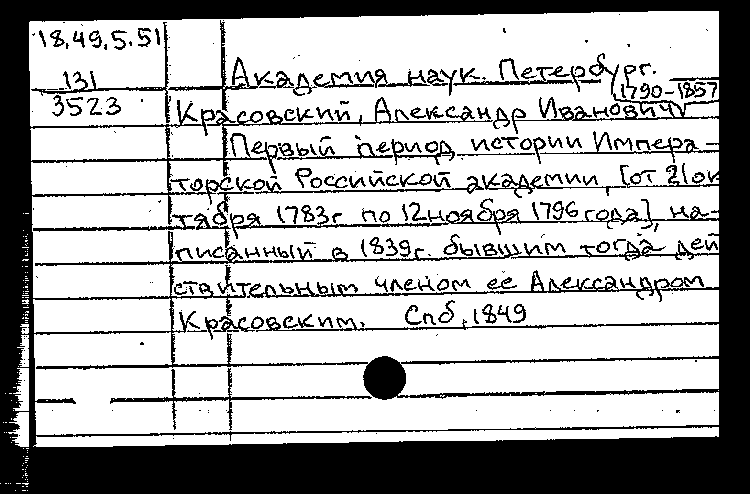 18.49.5.51
131
3523
Академия наук. Петербург.
(1790-1857
Красовский, Александр Иванович
Первый период истории Импера-
торской Российской академии, [от 21 ок
тября 1783г по 12 ноября 1796 года], на-
писанный в 1839г. бывшим тогда дей
ствительным членом ее Александром
Красовским. Спб, 1849